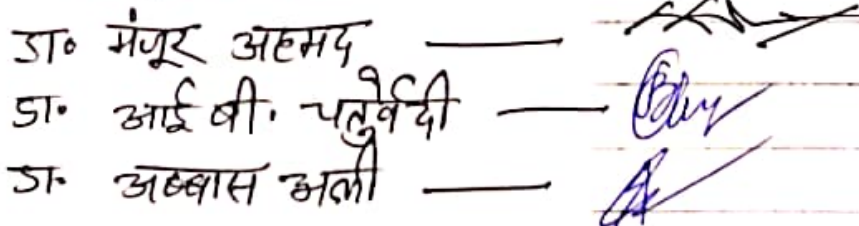 डा० मंजूर अहमद —
डा. आई बी. चतुर्वेदी —
डा. अब्बास अली —